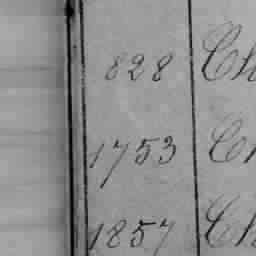 828 Ch
1753 C
1857 Ch